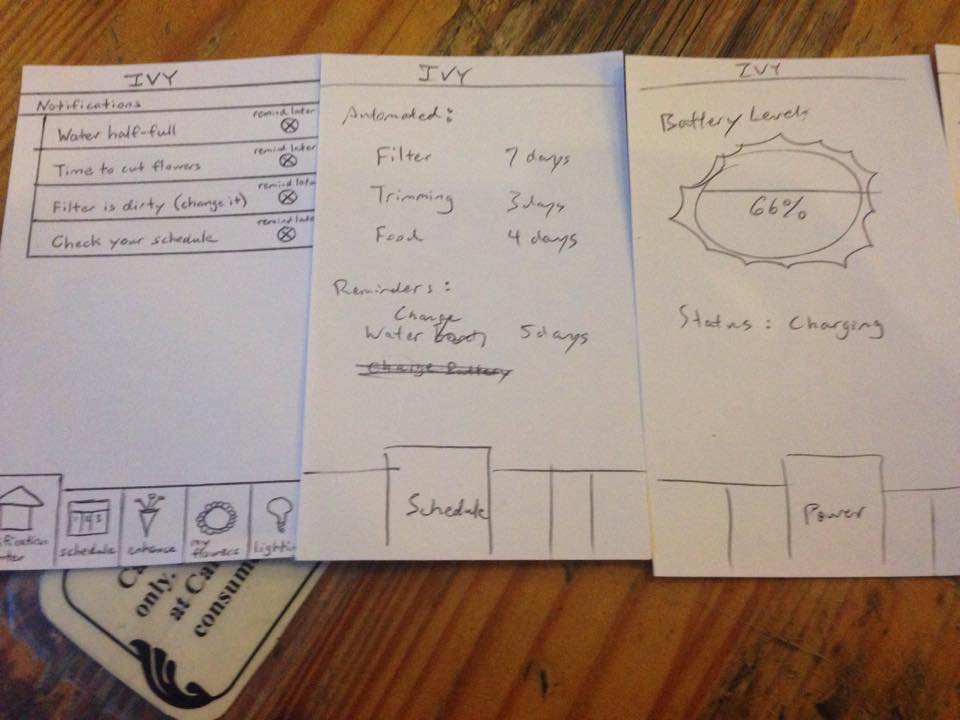 IVY
Notifications
Water half-full remind later
Time to cut flowers remind later
Filter is dirty (change it) remind late
Check your schedule remind late
schedule
enhance
my flowers
lightin
IVY
Automated:
Filter 7 days
Trimming 3 days
Food 4 days
Reminders:
Change
Water 5 days
Charge Battery
Schedule
IVY
Battery Level:
66%
Status: Charging
Power
Ca
only.
at Ca
consum